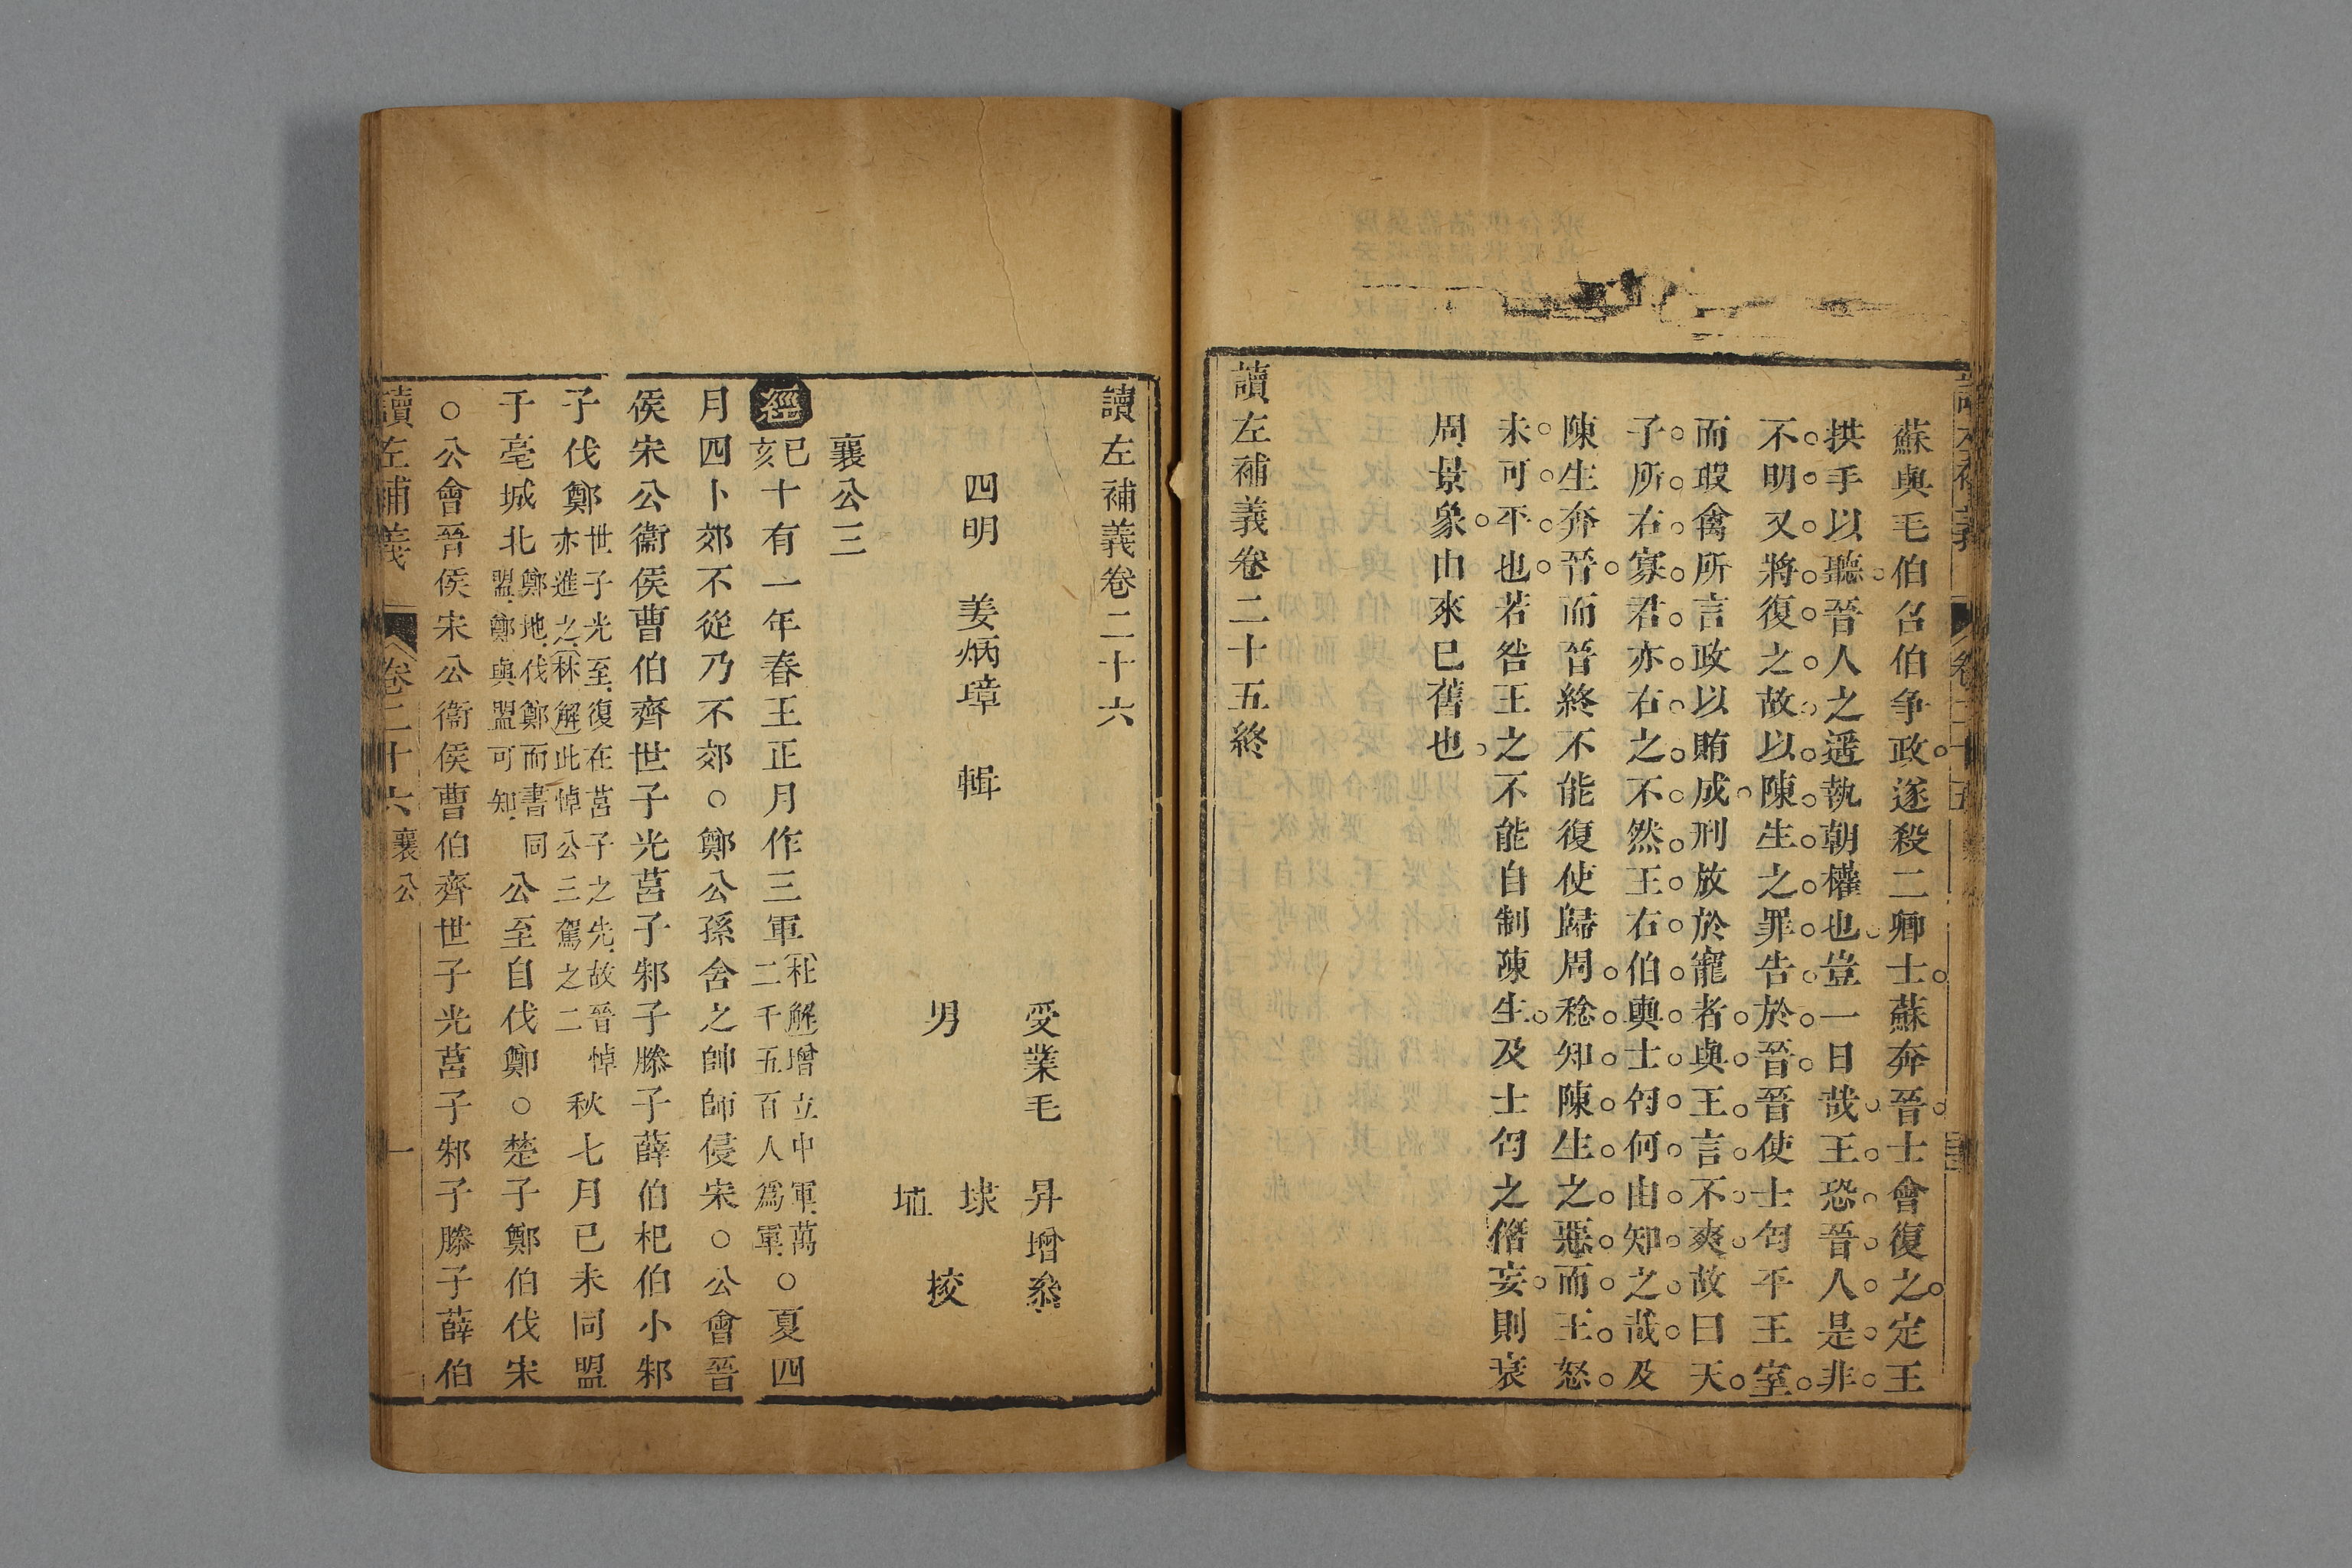 蘇與毛伯召伯争政遂殺二卿士蘇奔晉士會復之定王
拱手以聽晉人之遥執朝權也豈一日哉王恐晉人是非
不明又將復之故以陳生之罪告於晉晉使士匄平王室
而瑕禽所言政以賄成刑放於寵者與王言不爽故曰天
子所右寡君亦右之不然王右伯輿士匄何由知之哉及
陳生奔晉而晉終不能復使歸周稔知陳生之惡而王怒
未可平也若咎王之不能自制陳生及士匄之僭妄則衰
周景象由來已舊也
讀左補義卷二十五終
讀左補義卷二十六
受業毛 昇增叅
四明 姜炳璋 輯
男 埭 校
埴
襄公三
經 己亥十有一年春王正月作三軍杜解增立中軍萬二千五百人爲軍○夏四
月四卜郊不從乃不郊○鄭公孫舍之帥師侵宋○公會晉
侯宋公衞侯曹伯齊世子光莒子邾子滕子薛伯杞伯小邾
子伐鄭世子光至復在莒子之先故晉悼亦進之林解此悼公三駕之二秋七月己未同盟
于亳城北鄭地伐鄭而書同盟鄭與盟可知公至自伐鄭○楚子鄭伯伐宋
○公會晉侯宋公衞侯曹伯齊世子光莒子邾子滕子薛伯
讀左補義 卷二十六 襄公 一